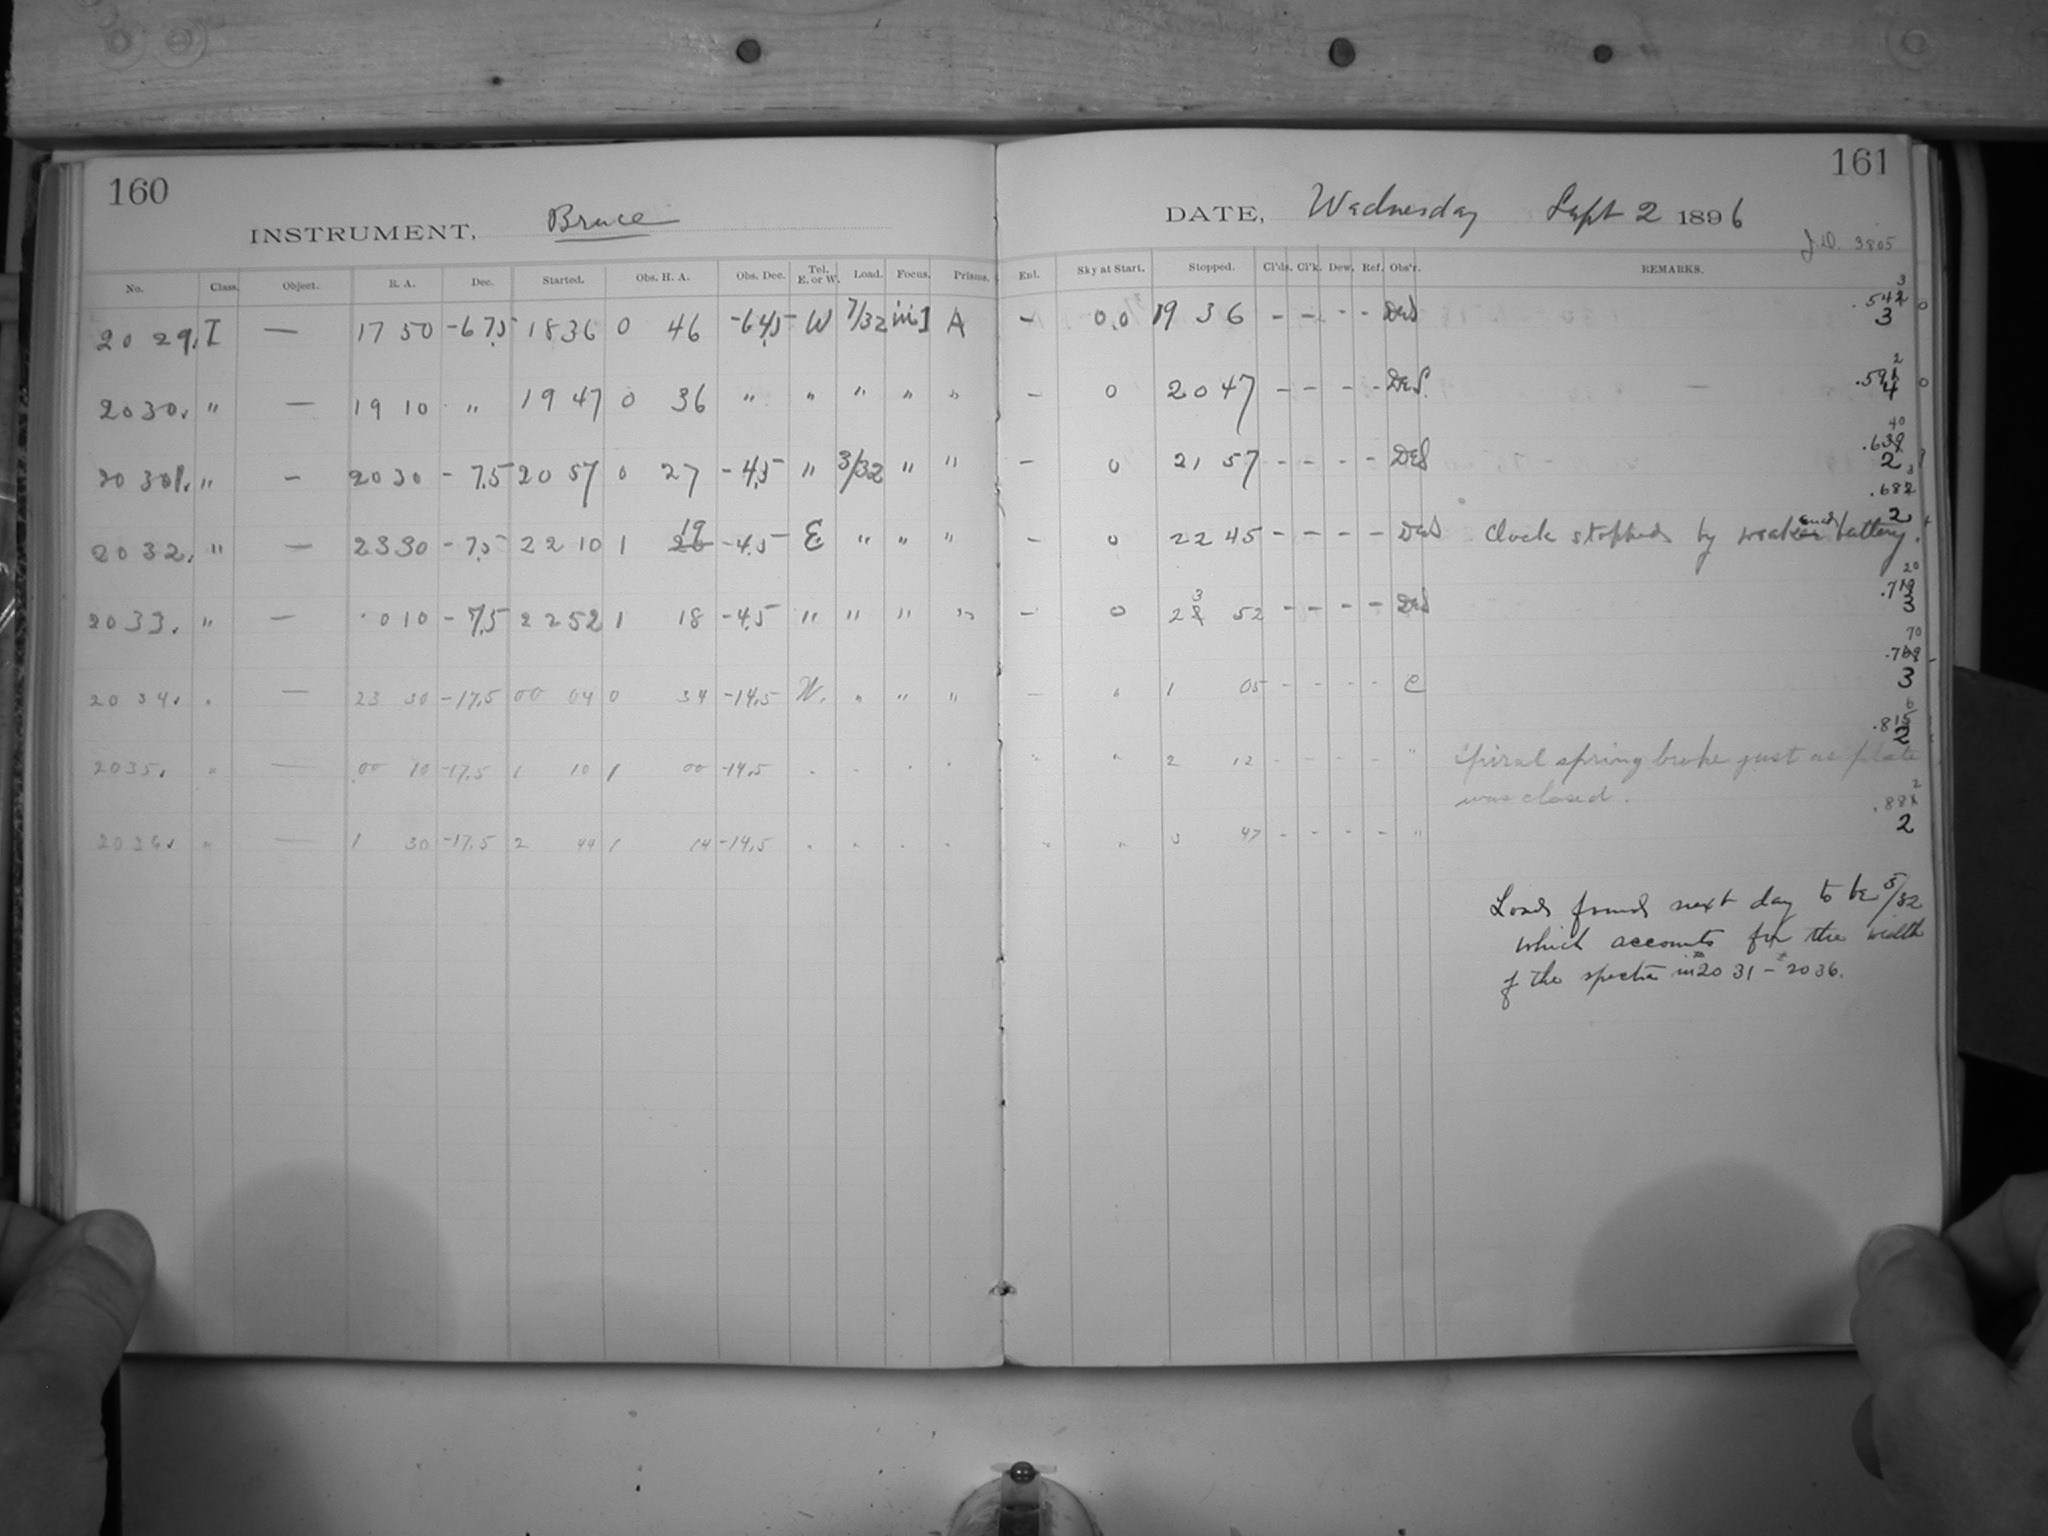 160
INSTRUMENT, Bruce
No. Class. Object. R. A. Dec. Started. Obs. H. A. Obs. Dec. Tel. E. or W. Load. Focus. Prisms.
2029. I — 17 50 -67.5 18 36 0 46 -64.5 W 7/32 in I A
2030. " — 19 10 " 19 47 0 36 " " " " "
2031. " — 20 30 -7.5 20 57 0 27 -4.5 " 3/32 " "
2032. " — 23 30 -7.5 22 10 1 19 -4.5 E " " "
2033. " — 0 10 -7.5 22 52 1 18 -4.5 " " " "
2034. " — 23 30 -17.5 00 04 0 34 -14.5 W. " " "
2035. " — 00 10 -17.5 1 10 1 00 -14.5 " " " "
2036. " — 1 30 -17.5 2 44 1 14 -14.5 " " " "
161
DATE, Wednesday Sept 2 1896
J.D. 3805
Enl. Sky at Start. Stopped. Cl'ds. Cl'k. Dew. Ref. Obs'r. REMARKS.
— 0.0 19 36 - - - - DES .543 3 0
— 0 20 47 - - - - DES. .592 4 0
— 0 21 57 - - - - DES .640 2
— 0 22 45 - - - - DES Clock stopped by weakened battery. .683 2
— 0 23 52 - - - - DES .720 3
— 0 1 05 - - - - C .770 3
" " 2 12 - - - - " Spiral spring broke just as plate .816 2
was closed.
" " 3 47 - - - - " .882 2
Load found next day to be 5/32
which accounts for the width
of the spectra in 2031 - 2036.